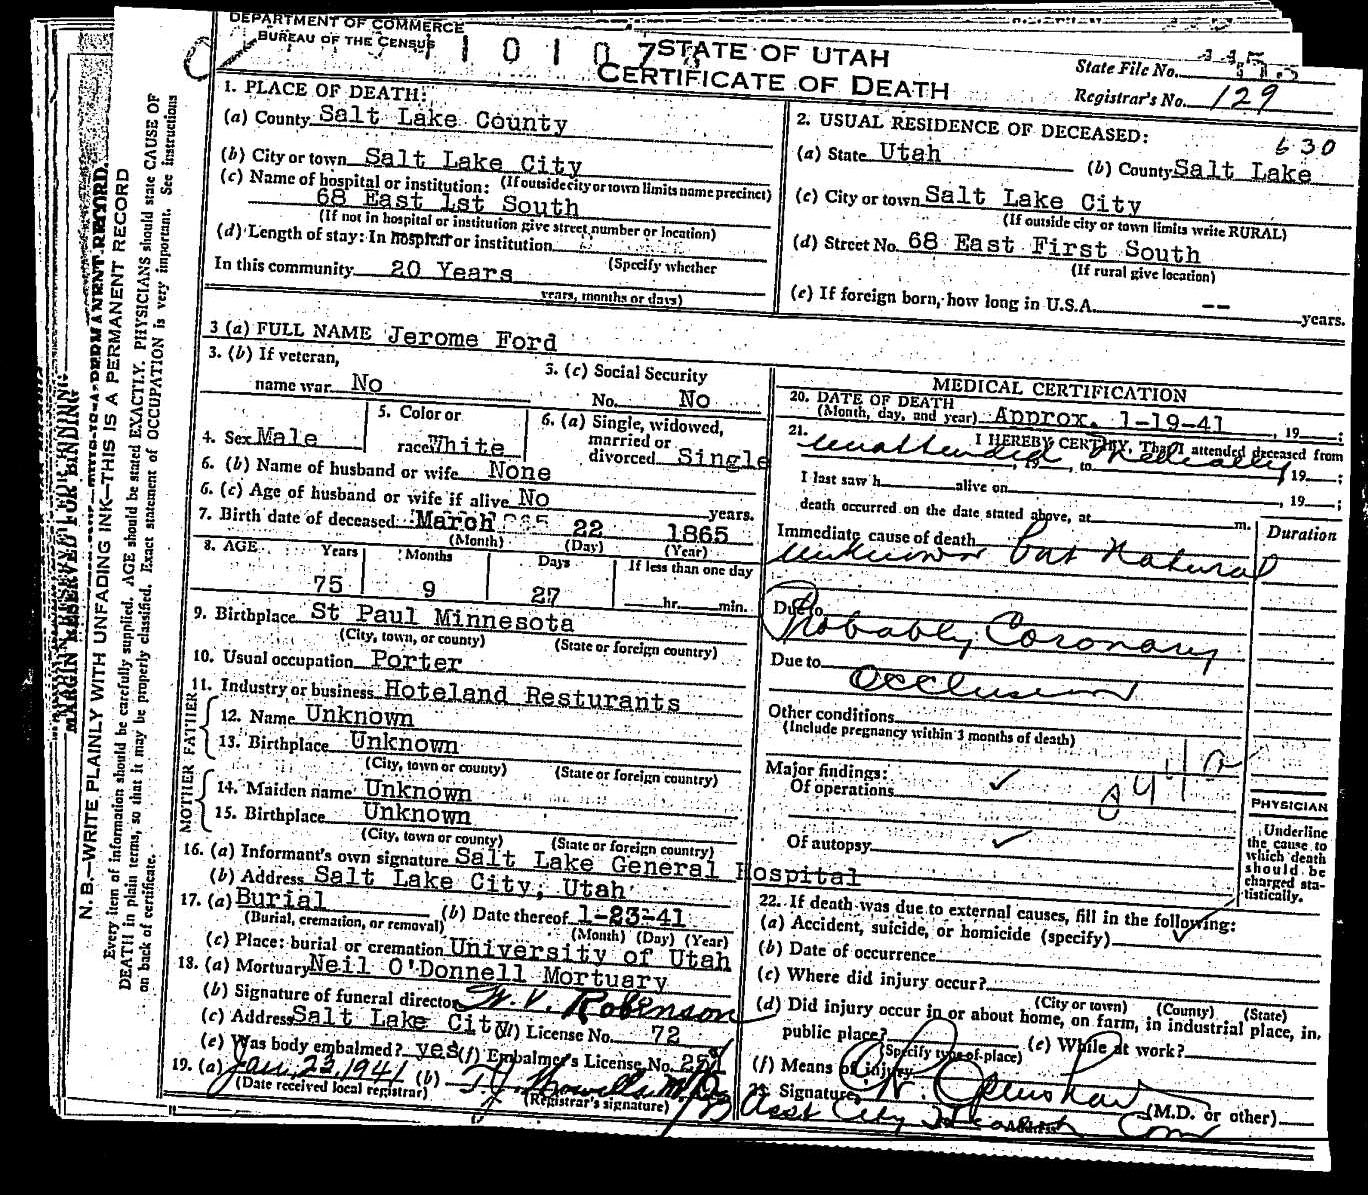 DEPARTMENT OF COMMERCE
BUREAU OF THE CENSUS
STATE OF UTAH
CERTIFICATE OF DEATH
State File No.
Registrar's No. 129
630
1. PLACE OF DEATH:
(a) County Salt Lake County
(b) City or town Salt Lake City
(c) Name of hospital or institution: (If outside city or town limits name precinct)
68 East 1st South
(If not in hospital or institution give street number or location)
(d) Length of stay: In hospital or institution
(Specify whether
In this community 20 Years
years, months or days)
2. USUAL RESIDENCE OF DECEASED:
(a) State Utah (b) County Salt Lake
(c) City or town Salt Lake City
(If outside city or town limits write RURAL)
(d) Street No. 68 East First South
(If rural give location)
(e) If foreign born, how long in U.S.A. -- years.
3 (a) FULL NAME Jerome Ford
3. (b) If veteran,
name war No
3. (c) Social Security
No. No
4. Sex Male
5. Color or
race White
6. (a) Single, widowed,
married or
divorced Single
6. (b) Name of husband or wife None
6. (c) Age of husband or wife if alive No years.
7. Birth date of deceased March 22 1865
(Month) (Day) (Year)
8. AGE Years Months Days If less than one day
75 9 27 hr. min.
9. Birthplace St Paul Minnesota
(City, town, or county) (State or foreign country)
10. Usual occupation Porter
11. Industry or business Hoteland Resturants
FATHER
12. Name Unknown
13. Birthplace Unknown
(City, town or county) (State or foreign country)
MOTHER
14. Maiden name Unknown
15. Birthplace Unknown
(City, town or county) (State or foreign country)
16. (a) Informant's own signature Salt Lake General Hospital
(b) Address Salt Lake City, Utah
17. (a) Burial (b) Date thereof 1-23-41
(Burial, cremation, or removal) (Month) (Day) (Year)
(c) Place: burial or cremation University of Utah
18. (a) Mortuary Neil O'Donnell Mortuary
(b) Signature of funeral director W. V. Robinson
(c) Address Salt Lake City (d) License No. 72
(e) Was body embalmed? yes (f) Embalmer's License No.
19. (a) Jan. 23, 1941 (b)
(Date received local registrar) (Registrar's signature)
MEDICAL CERTIFICATION
20. DATE OF DEATH
(Month, day, and year) Approx. 1-19-41, 19 ;
21. I HEREBY CERTIFY, That I attended deceased from
unattended Medically
, 19 , to 19 ;
I last saw h alive on , 19 ;
death occurred on the date stated above, at m.
Immediate cause of death Duration
unknown but Natural
Due to
Probably Coronary
Due to
Occlusion
Other conditions
(Include pregnancy within 3 months of death)
Major findings:
Of operations ✓
Of autopsy ✓
PHYSICIAN
Underline
the cause to
which death
should be
charged sta-
tistically.
22. If death was due to external causes, fill in the following:
(a) Accident, suicide, or homicide (specify) ✓
(b) Date of occurrence
(c) Where did injury occur?
(City or town) (County) (State)
(d) Did injury occur in or about home, on farm, in industrial place, in
public place? (e) While at work?
(Specify type of place)
(f) Means of injury
23. Signature (M.D. or other)
Asst City Health Com
Address
MARGIN RESERVED FOR BINDING
N. B.—WRITE PLAINLY WITH UNFADING INK—THIS IS A PERMANENT RECORD
Every item of information should be carefully supplied. AGE should be stated EXACTLY. PHYSICIANS should state CAUSE OF
DEATH in plain terms, so that it may be properly classified. Exact statement of OCCUPATION is very important. See instructions
on back of certificate.